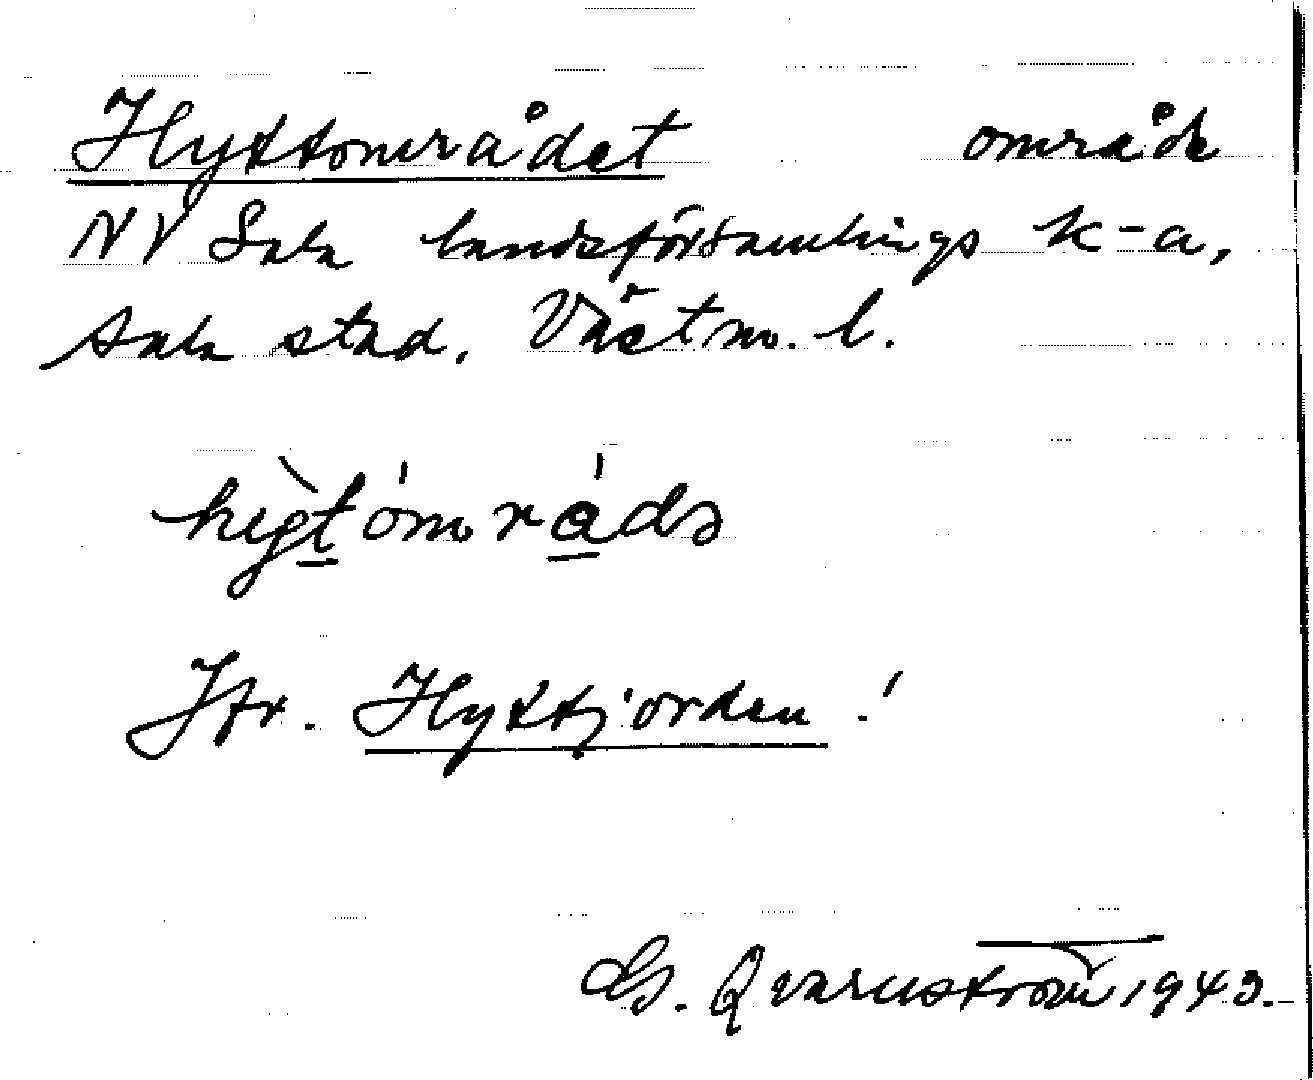 Hyttområdet område
NV Sala landsförsamlings k-a,
Sala stad. Västm. l.
Jfr. Hyttjorden!
G. Qvarnström 1943.